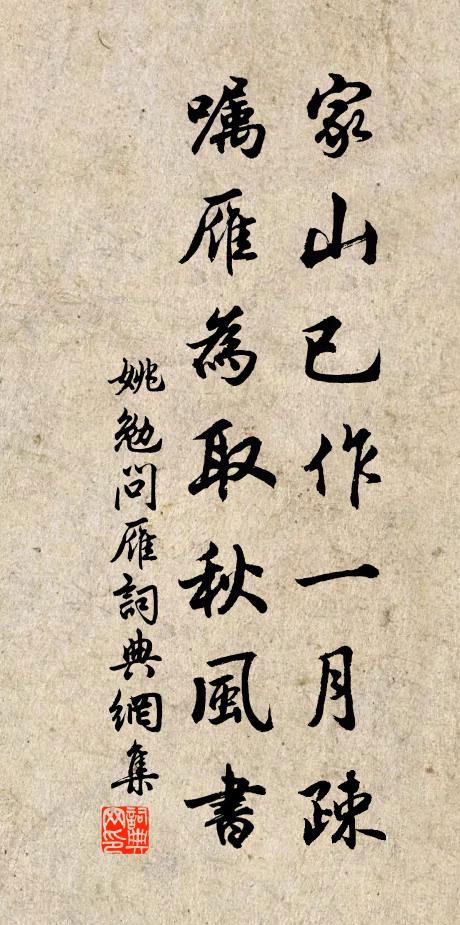 家山已作一月疎
嘱雁為取秋風書
姚勉問雁詞典網集
詞典网印